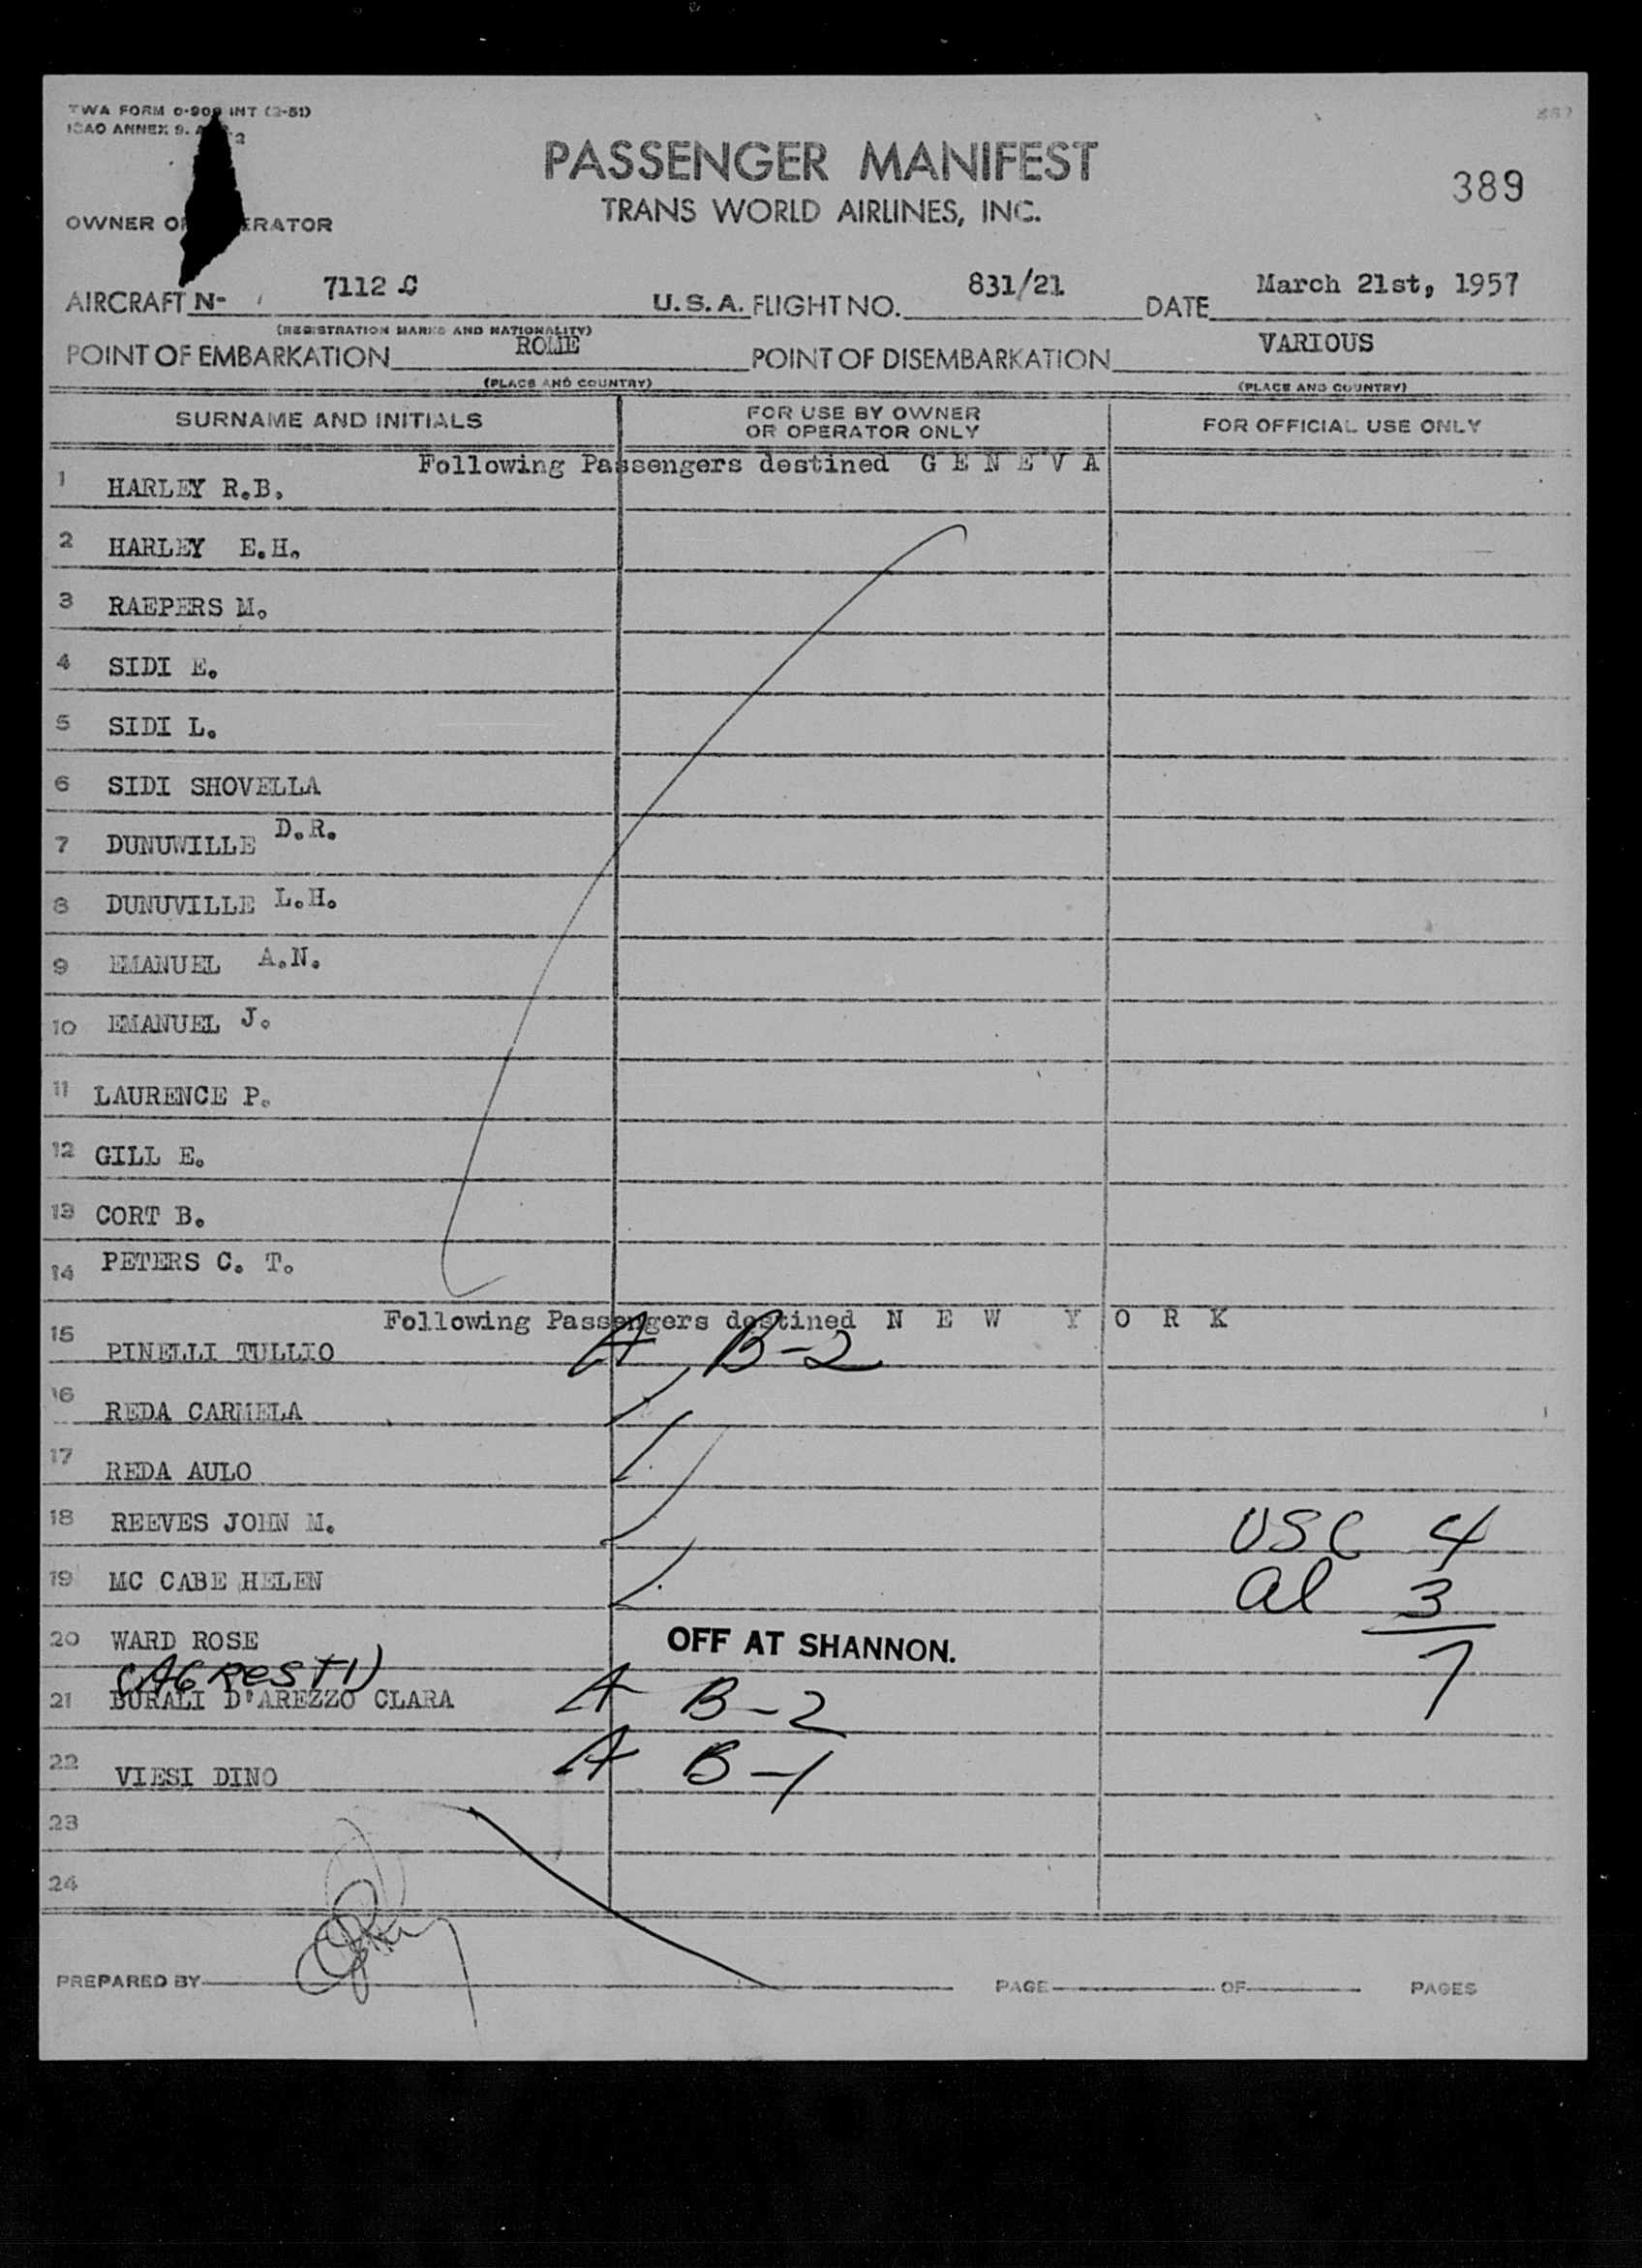 TWA FORM 0-909 INT (2-51)
ICAO ANNEX 9. A
387
PASSENGER MANIFEST
TRANS WORLD AIRLINES, INC.
389
OWNER OR OPERATOR
AIRCRAFT N- 7112 C U.S.A. FLIGHT NO. 831/21 DATE March 21st, 1957
(REGISTRATION MARKS AND NATIONALITY)
POINT OF EMBARKATION ROME POINT OF DISEMBARKATION VARIOUS
(PLACE AND COUNTRY) (PLACE AND COUNTRY)
SURNAME AND INITIALS FOR USE BY OWNER OR OPERATOR ONLY FOR OFFICIAL USE ONLY
Following Passengers destined G E N E V A
1 HARLEY R.B.
2 HARLEY E.H.
3 RAEPERS M.
4 SIDI E.
5 SIDI L.
6 SIDI SHOVELLA
7 DUNUWILLE D.R.
8 DUNUVILLE L.H.
9 EMANUEL A.N.
10 EMANUEL J.
11 LAURENCE P.
12 GILL E.
13 CORT B.
14 PETERS C. T.
Following Passengers destined N E W Y O R K
15 PINELLI TULLIO A B-2
16 REDA CARMELA
17 REDA AULO
18 REEVES JOHN M. USC 4
19 MC CABE HELEN al 3
20 WARD ROSE OFF AT SHANNON. 7
(AGRESTI)
21 BURALI D'AREZZO CLARA A B-2
22 VIESI DINO A B-1
23
24
PREPARED BY PAGE OF PAGES